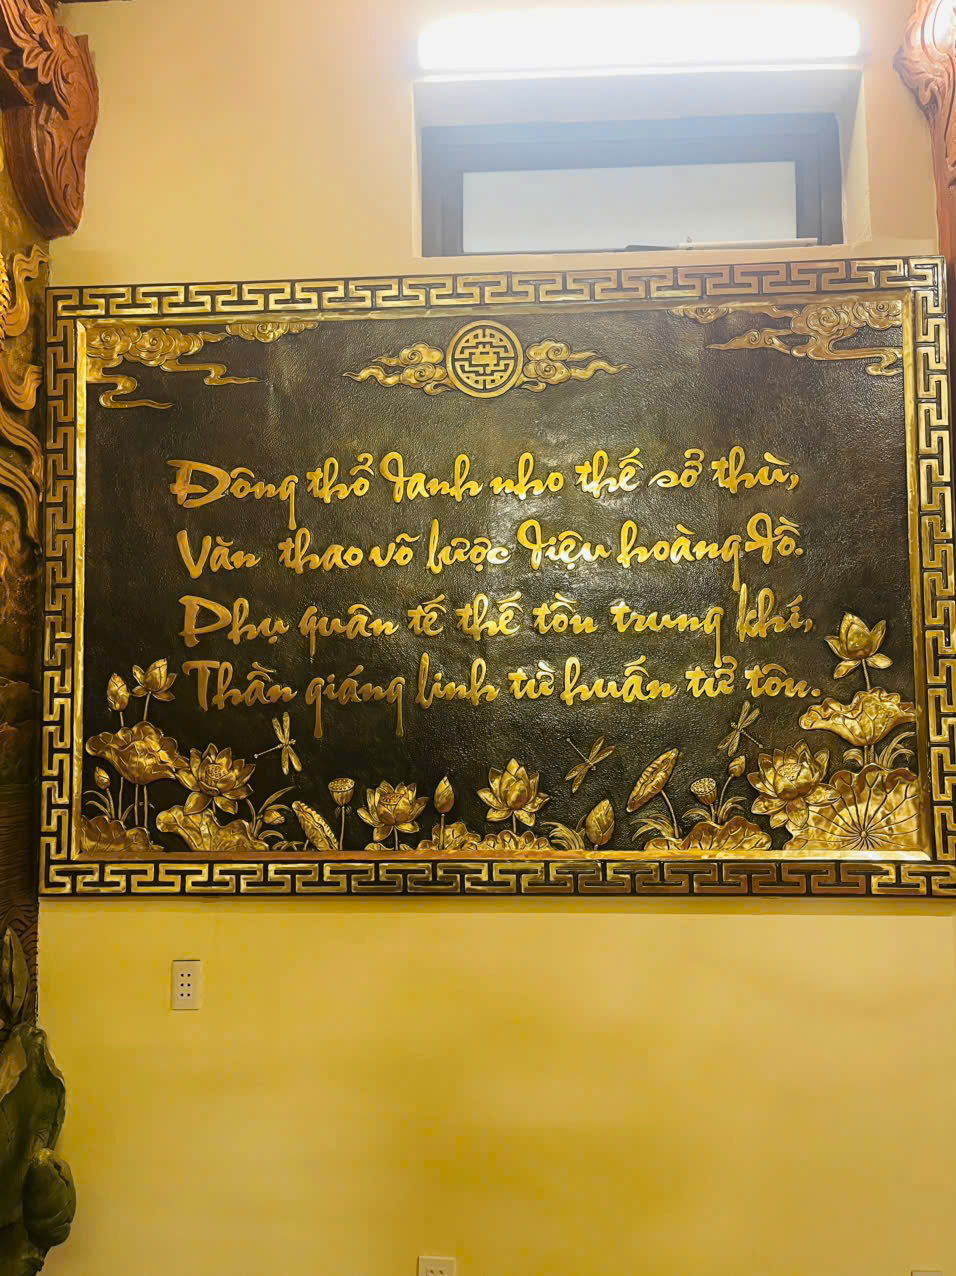 Đông thổ danh nho thế sở thù,
Văn thao võ lược diệu hoàng đồ.
Phụ quân tế thế tồn trung khí,
Thần giáng linh từ huấn tử tôn.